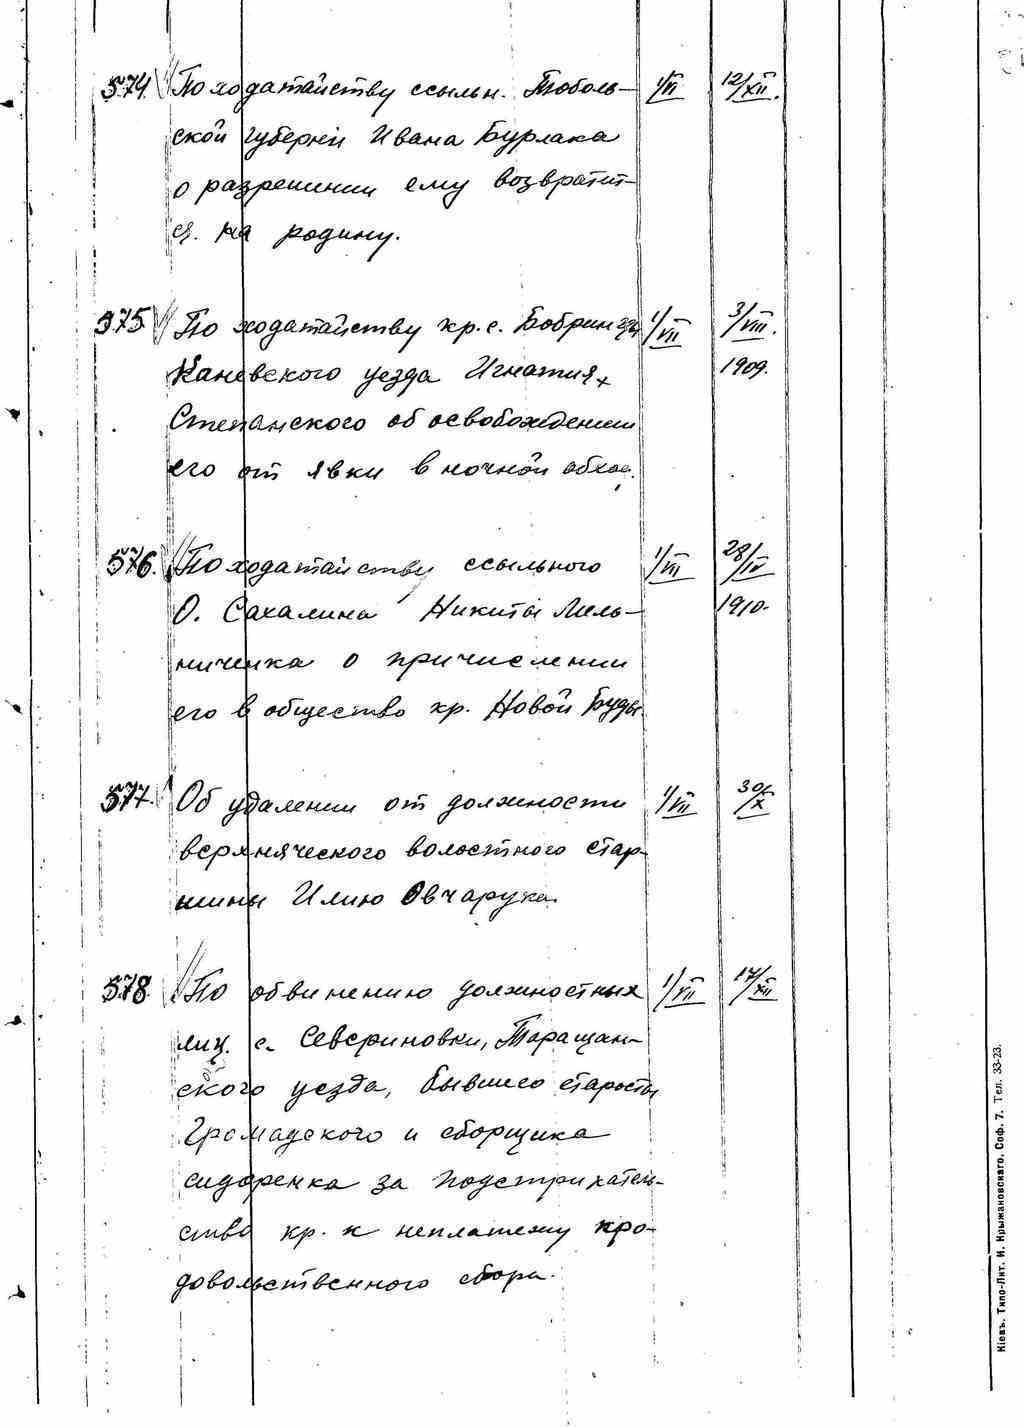 574. По ходатайству ссыльн. Тоболь- 1/VII 12/XII.
ской губернии Ивана Бурлака
о разрешении ему возвратит-
ся. на родину.
575 По ходатайству кр. с. Бобрин 1/VII 3/VIII.
Каневского уезда Игнатия 1909.
Степанского об освобождении
его от явки в ночной обход.
576. По ходатайству ссыльного 1/VII 28/IV
О. Сахалина Никиты Мель- 1910.
ниченка о причислении
его в общество кр. Новой Буды
577. Об удалении от должности 1/VII 30/X
верхняческого волостного стар-
шины Илию Овчарука.
578 По обвинению должностных 1/VII 17/XII
лиц. с. Севериновки, Таращан-
ского уезда, бывшего старосты
Громадского и сборщика
сидоренка за подстрихатель-
ство кр. к неплатежу про-
довольственного сбора.
Кіевъ. Типо-Лит. И. Крыжановскаго. Соф. 7. Тел. 33-23.